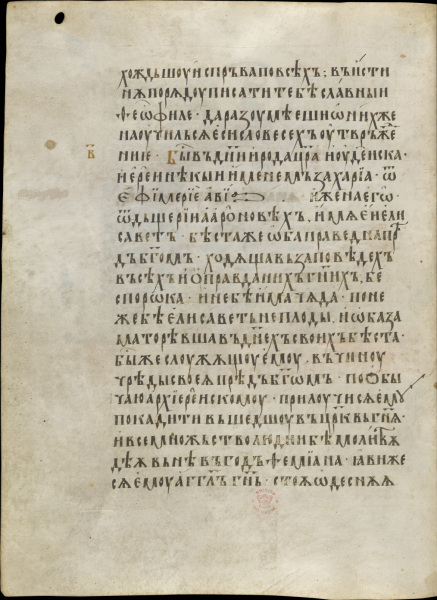 хождьшоу испръва по всѣхъ; въисти
нѫ порѧдоу писати тебѣ славныи
ѳеѡфиле · да разоумѣеши ѡ нихже
наоучилъсѧ еси словесехъ оутвръже
ние · Бы въ дн҃и ирода цр҃ѣ иоудеиска ·
в҃
иереи нѣкыи именемъ захарїа · ѿ
ефимерїе авїѧ и жена его ѿ
дъщерїи аарѡновѣхъ, и имѧ еи ели
саветъ · бѣстаже ѡба праведна прѣ
дъ бг҃омъ · ходѧща въ заповѣдехъ
въсѣхъ и ѡправданихъ гн҃ихъ, бе
спорѡка · и не бѣ има чѧда · поне
же бѣ елисаветь неплоды, и ѡба за
маторѣвша въ дн҃ехъ своихъ бѣста ·
бы же слоужѧщоу емоу, въ чиноу
чрѣды своеѧ прѣдъ бг҃омъ · по ѡбы
чаю архїерѣискомоу · прилоучисѧ емоу
покадити въшедшоу въ цр҃квь гн҃ѧ ·
и все множьство людии бѣ молитвѫ
дѣѧ вьнѣ въ годъ ѳемїана · ꙗви же
сѧ емоу агг҃лъ гн҃ь · стоѧ ѡдеснѫѧ